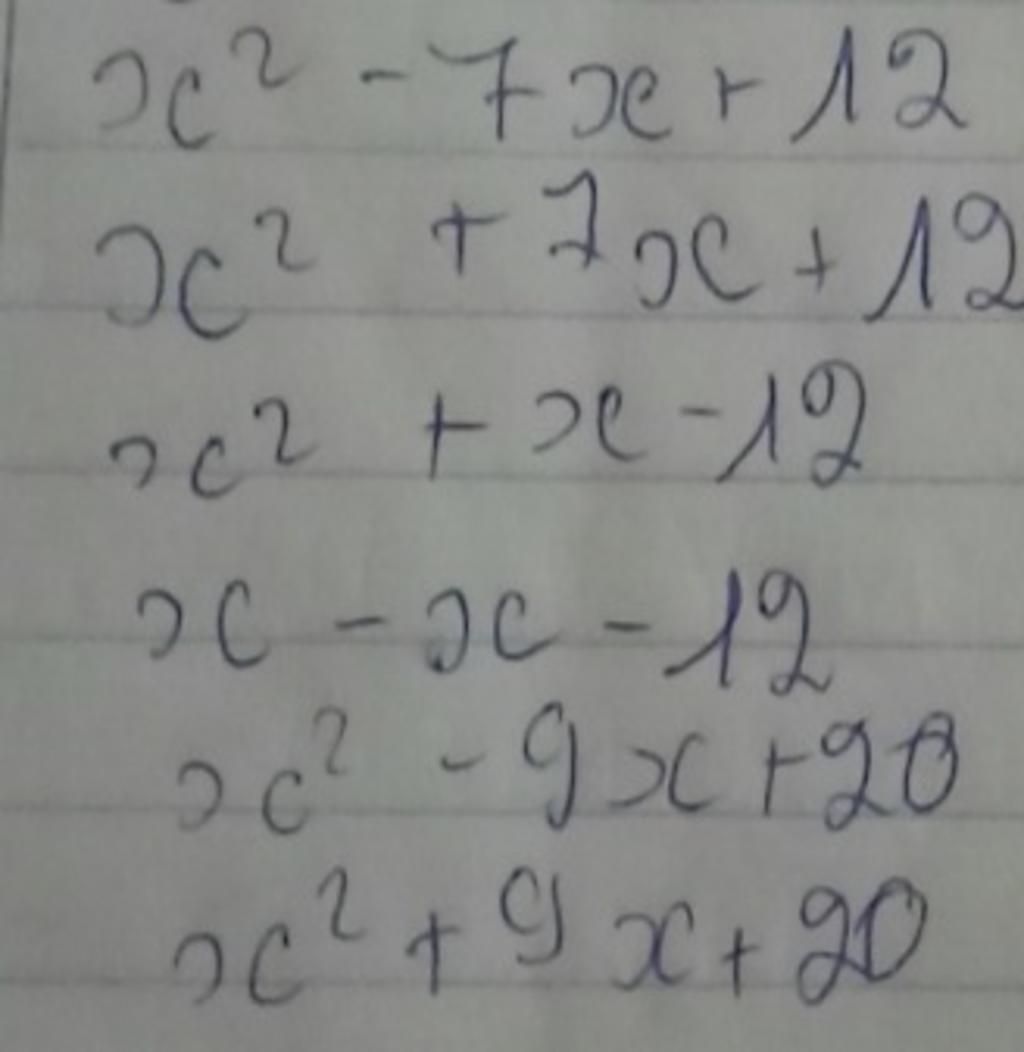 x² - 7x + 12
x² + 7x + 12
x² + x - 12
x - x - 12
x² - 9x + 20
x² + 9x + 20